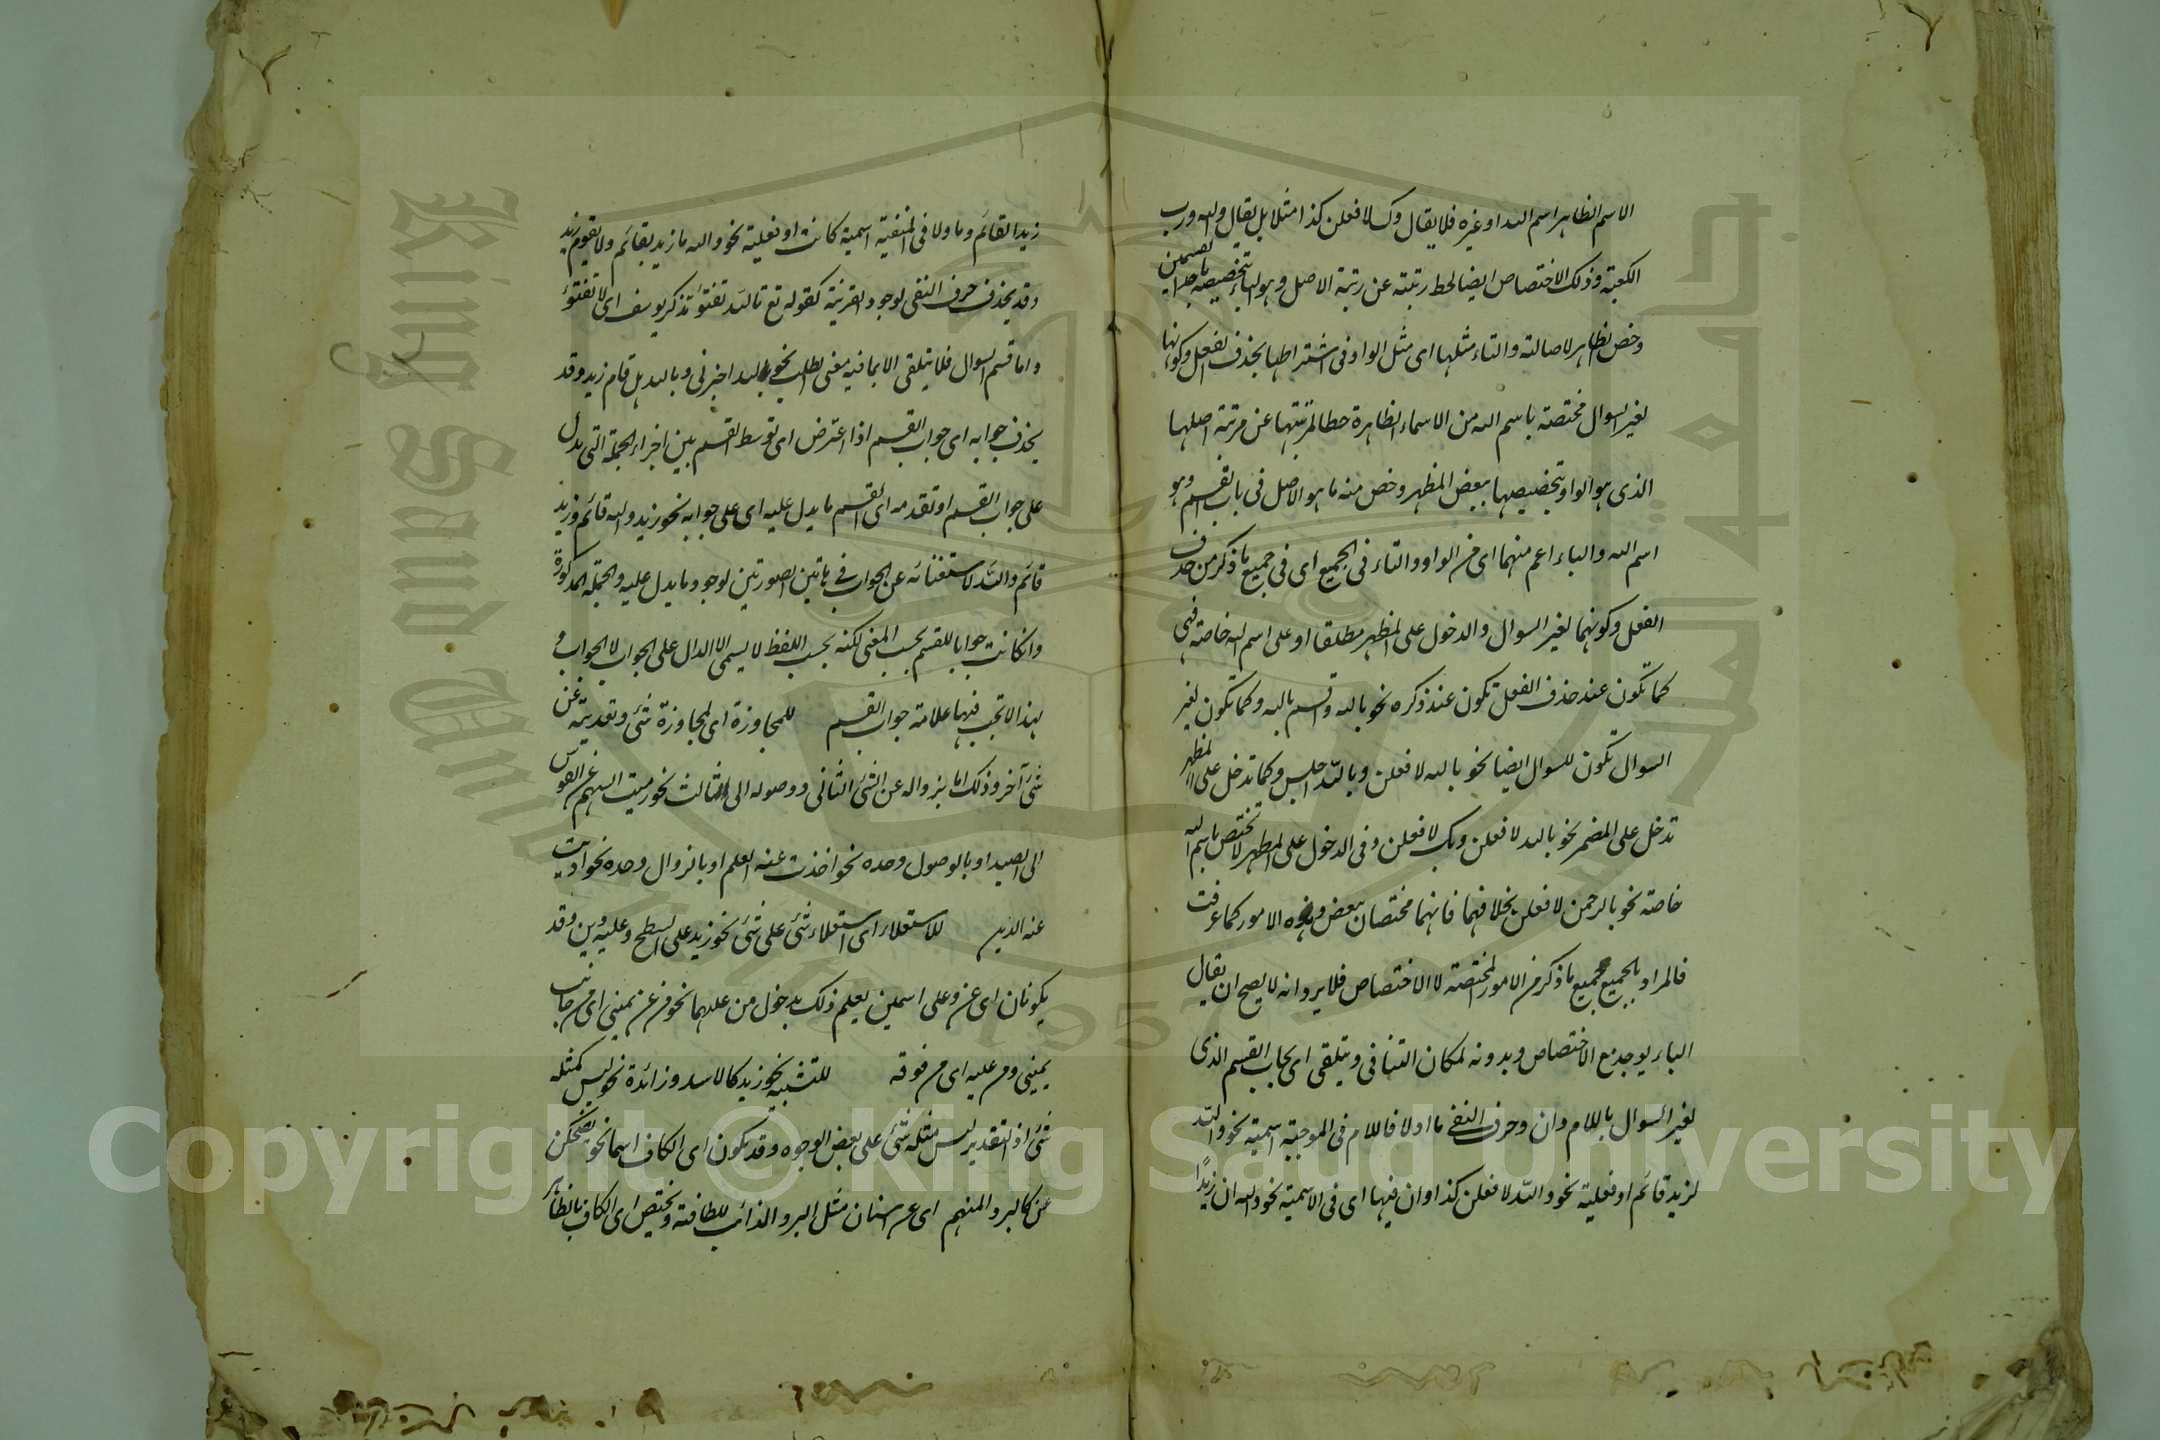 الاسم الظاهر اسم الله او غيره فلا يقال وك لافعلن كذا مثلا بل يقال والله ورب
الكعبة وذلك الاختصاص ايضا لحط رتبته عن رتبة الاصل وهو الباء بتخصيصه باحد القسمين
وخص الظاهر لاصالته والتاء مثلها اى مثل الواو فى اشتراطها بحذف الفعل وكونها
لغير السوال مختصة باسم الله من الاسماء الظاهرة حطا لمرتبتها عن مرتبة اصلها
الذى هو الواو بتخصيصها ببعض المظهر وخص منه ما هو الاصل فى باب القسم وهو
اسم الله والباء اعم منهما اى من الواو والتاء فى الجميع اى فى جميع ما ذكر من حذف
الفعل وكونهما لغير السوال والدخول على المظهر مطلقا او على اسم الله خاصة فهى
كما تكون عند حذف الفعل تكون عند ذكره نحو بالله واقسم بالله وكما تكون لغير
السوال تكون للسوال ايضا نحو بالله لافعلن وبالله اجلس وكما تدخل على المظهر
تدخل على المضمر نحو بالله لافعلن وبك لافعلن وفى الدخول على المظهر لا تختص باسم الله
خاصة نحو بالرحمن لافعلن بخلافهما فانهما مختصان ببعض هذه الامور كما عرفت
فالمراد بالجميع جميع ما ذكر من الامور المختصة لا الاختصاص فلا يرد انه لا يصح ان يقال
الباء يوجد مع الاختصاص وبدونه لمكان التنافى ويتلقى اى يجاب القسم الذى
لغير السوال باللام وان وحرف النفى ما او لا فاللام فى الموجبة اسمية نحو والله
لزيد قائم او فعلية نحو والله لافعلن كذا وان فيها اى فى الاسمية نحو والله ان زيدًا
زيدا لقائم وما ولا فى المنفية اسمية كانت او فعلية نحو والله ما زيد بقائم ولا يقوم زيد
وقد يحذف حرف النفى لوجود القرينة كقوله تع تالله تفتؤ تذكر يوسف اى لا تفتؤ
واما قسم السوال فلا يتلقى الا بما فيه معنى الطلب نحو بالله اخبرنى وبالله هل قام زيد وقد
يحذف جوابه اى جواب القسم اذا اعترض اى توسط القسم بين اجزاء الجملة التى يدل
على جواب القسم او تقدمه اى القسم ما يدل عليه اى على جوابه نحو زيد والله قائم وزيد
قائم والله لاستغنائه عن الجواب فى هاتين الصورتين لوجود ما يدل عليه والجملة المذكورة
وان كانت جوابا للقسم بحسب المعنى لكنه بحسب اللفظ لا يسمى الا الدال على الجواب لا الجواب و
لهذا لا تجب فيها علامة جواب القسم للمجاوزة اى لمجاوزة شئ وتعديته عن
شئ آخر وذلك اما بزواله عن الشئ الثانى ووصوله الى الثالث نحو رميت السهم عن القوس
الى الصيد او بالوصول وحده نحو اخذت عنه العلم او بالزوال وحده نحو اديت
عنه الدين للاستعلاء اى استعلاء شئ على شئ نحو زيد على السطح وعليه دين وقد
يكونان اى عن وعلى اسمين يعلم ذلك بدخول من عليهما نحو من عن يمينى اى من جانب
يمينى ومن عليه اى من فوقه للتشبيه نحو زيد كالاسد وزائدة نحو ليس كمثله
شئ اذ التقدير ليس مثله شئ على بعض الوجوه وقد يكون اى الكاف اسما نحو يضحكن
عن كالبرد المنهم اى عن اسنان مثل البرد الذائب للطافته ويختص اى الكاف بالظاهر